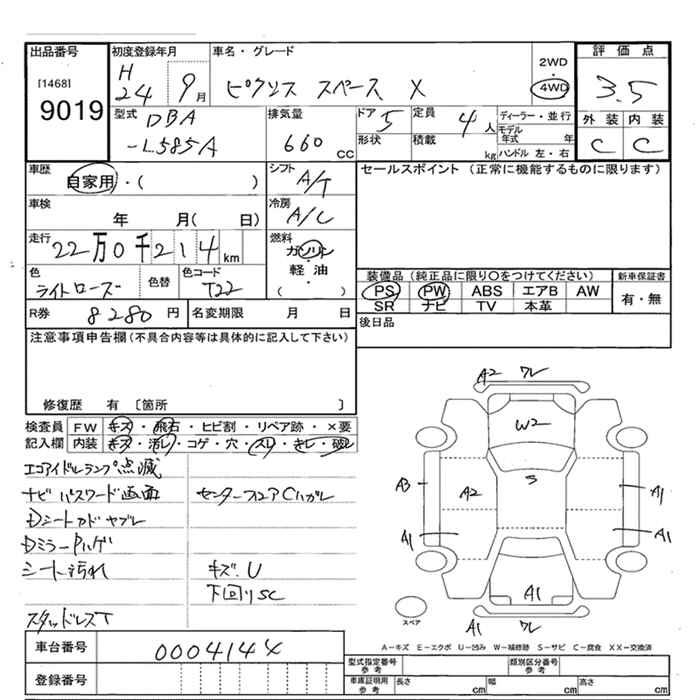 出品番号 初度登録年月 車名・グレード 2WD ・ 4WD 評価点
[1468] 9019 H 24 9月 ピクシス スペース X 3.5
型式 DBA -L585A 排気量 660 CC ドア 5 定員 4人 ディーラー・並行
形状 積載 kg モデル年式 年 ハンドル 左・右
外装 内装
C C
車歴 自家用・( ) シフト A/T セールスポイント (正常に機能するものに限ります)
車検 年 月( 日) 冷房 A/C
走行 22万0千214km 燃料 ガソリン 軽油 ( )
色 ライトローズ 色替 色コード T22
装備品 (純正品に限り○をつけてください) 新車保証書
PS PW ABS エアB AW 有・無
SR ナビ TV 本革
R券 8280円 名変期限 月 日 後日品
注意事項申告欄(不具合内容等は具体的に記入して下さい)
修復歴 有 〔箇所 〕
検査員記入欄 FW キズ・飛石・ヒビ割・リペア跡・×要
内装 キズ・汚レ・コゲ・穴・スレ・キレ・破レ
エコアイドルランプ点滅
ナビ パスワード画面 センターフロアCハガレ
Dシートカド ヤブレ
Dミラーハゲ
シート汚れ キズ、U
下回りSC
スタッドレスT
A2 ワレ
W2
S
A3 A2 A1
A1 A1
A1
A1 ワレ
スペア
A-キズ E-エクボ U-凹み W-補修跡 S-サビ C-腐食 XX-交換済
車台番号 0004144
登録番号
型式指定番号 参考 類別区分番号 参考
車庫証明用 参考 長さ cm 幅 cm 高さ cm